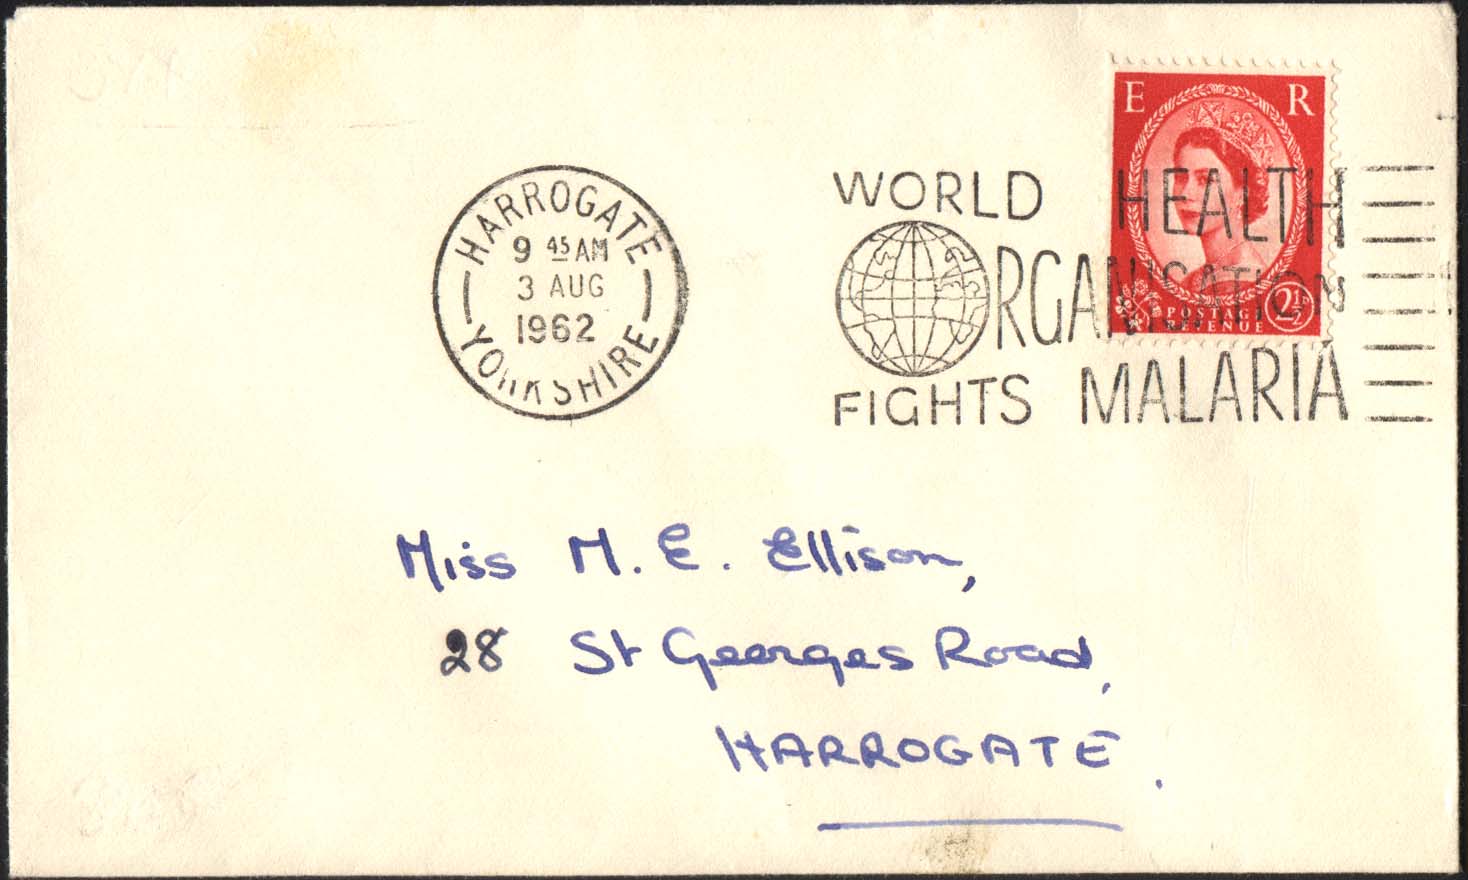 E R
HARROGATE
9 45 AM
3 AUG
1962
YORKSHIRE
WORLD HEALTH
ORGANISATION
FIGHTS MALARIA
POSTAGE
REVENUE
2½D
Miss M. E. Ellison,
28 St Georges Road,
HARROGATE.